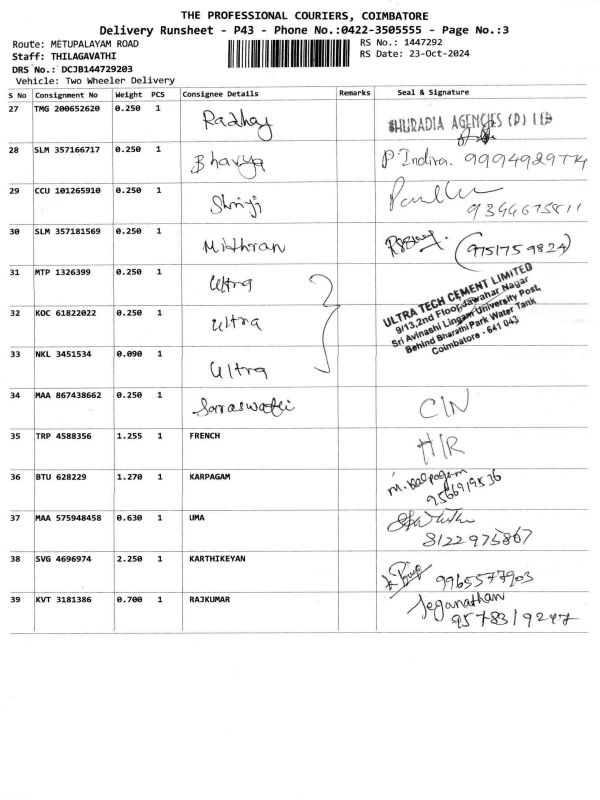 THE PROFESSIONAL COURIERS, COIMBATORE
Delivery Runsheet - P43 - Phone No.:0422-3505555 - Page No.:3
Route: METUPALAYAM ROAD RS No.: 1447292
Staff: THILAGAVATHI RS Date: 23-Oct-2024
DRS No.: DCJB144729203
Vehicle: Two Wheeler Delivery
S No Consignment No Weight PCS Consignee Details Remarks Seal & Signature
27 TMG 200652620 0.250 1 Radhay BHURADIA AGENCIES (P) LTD
28 SLM 357166717 0.250 1 Bhavya P. Indira. 9994929774
29 CCU 101265910 0.250 1 Shriji 9344675811
30 SLM 357181569 0.250 1 Mithran (9751759824)
31 MTP 1326399 0.250 1 Ultra
ULTRA TECH CEMENT LIMITED
9/13,2nd Floor,Jawahar Nagar
Sri Avinashi Lingam University Post,
Behind Bharathi Park Water Tank
Coimbatore - 641 043
32 KOC 61822022 0.250 1 Ultra
33 NKL 3451534 0.090 1 Ultra
34 MAA 867438662 0.250 1 Saraswathi C/N
35 TRP 4588356 1.255 1 FRENCH H/R
36 BTU 628229 1.270 1 KARPAGAM M. Kalpagam
9566919536
37 MAA 575948458 0.630 1 UMA
8122975867
38 SVG 4696974 2.250 1 KARTHIKEYAN 9965577903
39 KVT 3181386 0.700 1 RAJKUMAR Jeganathan
9578319247